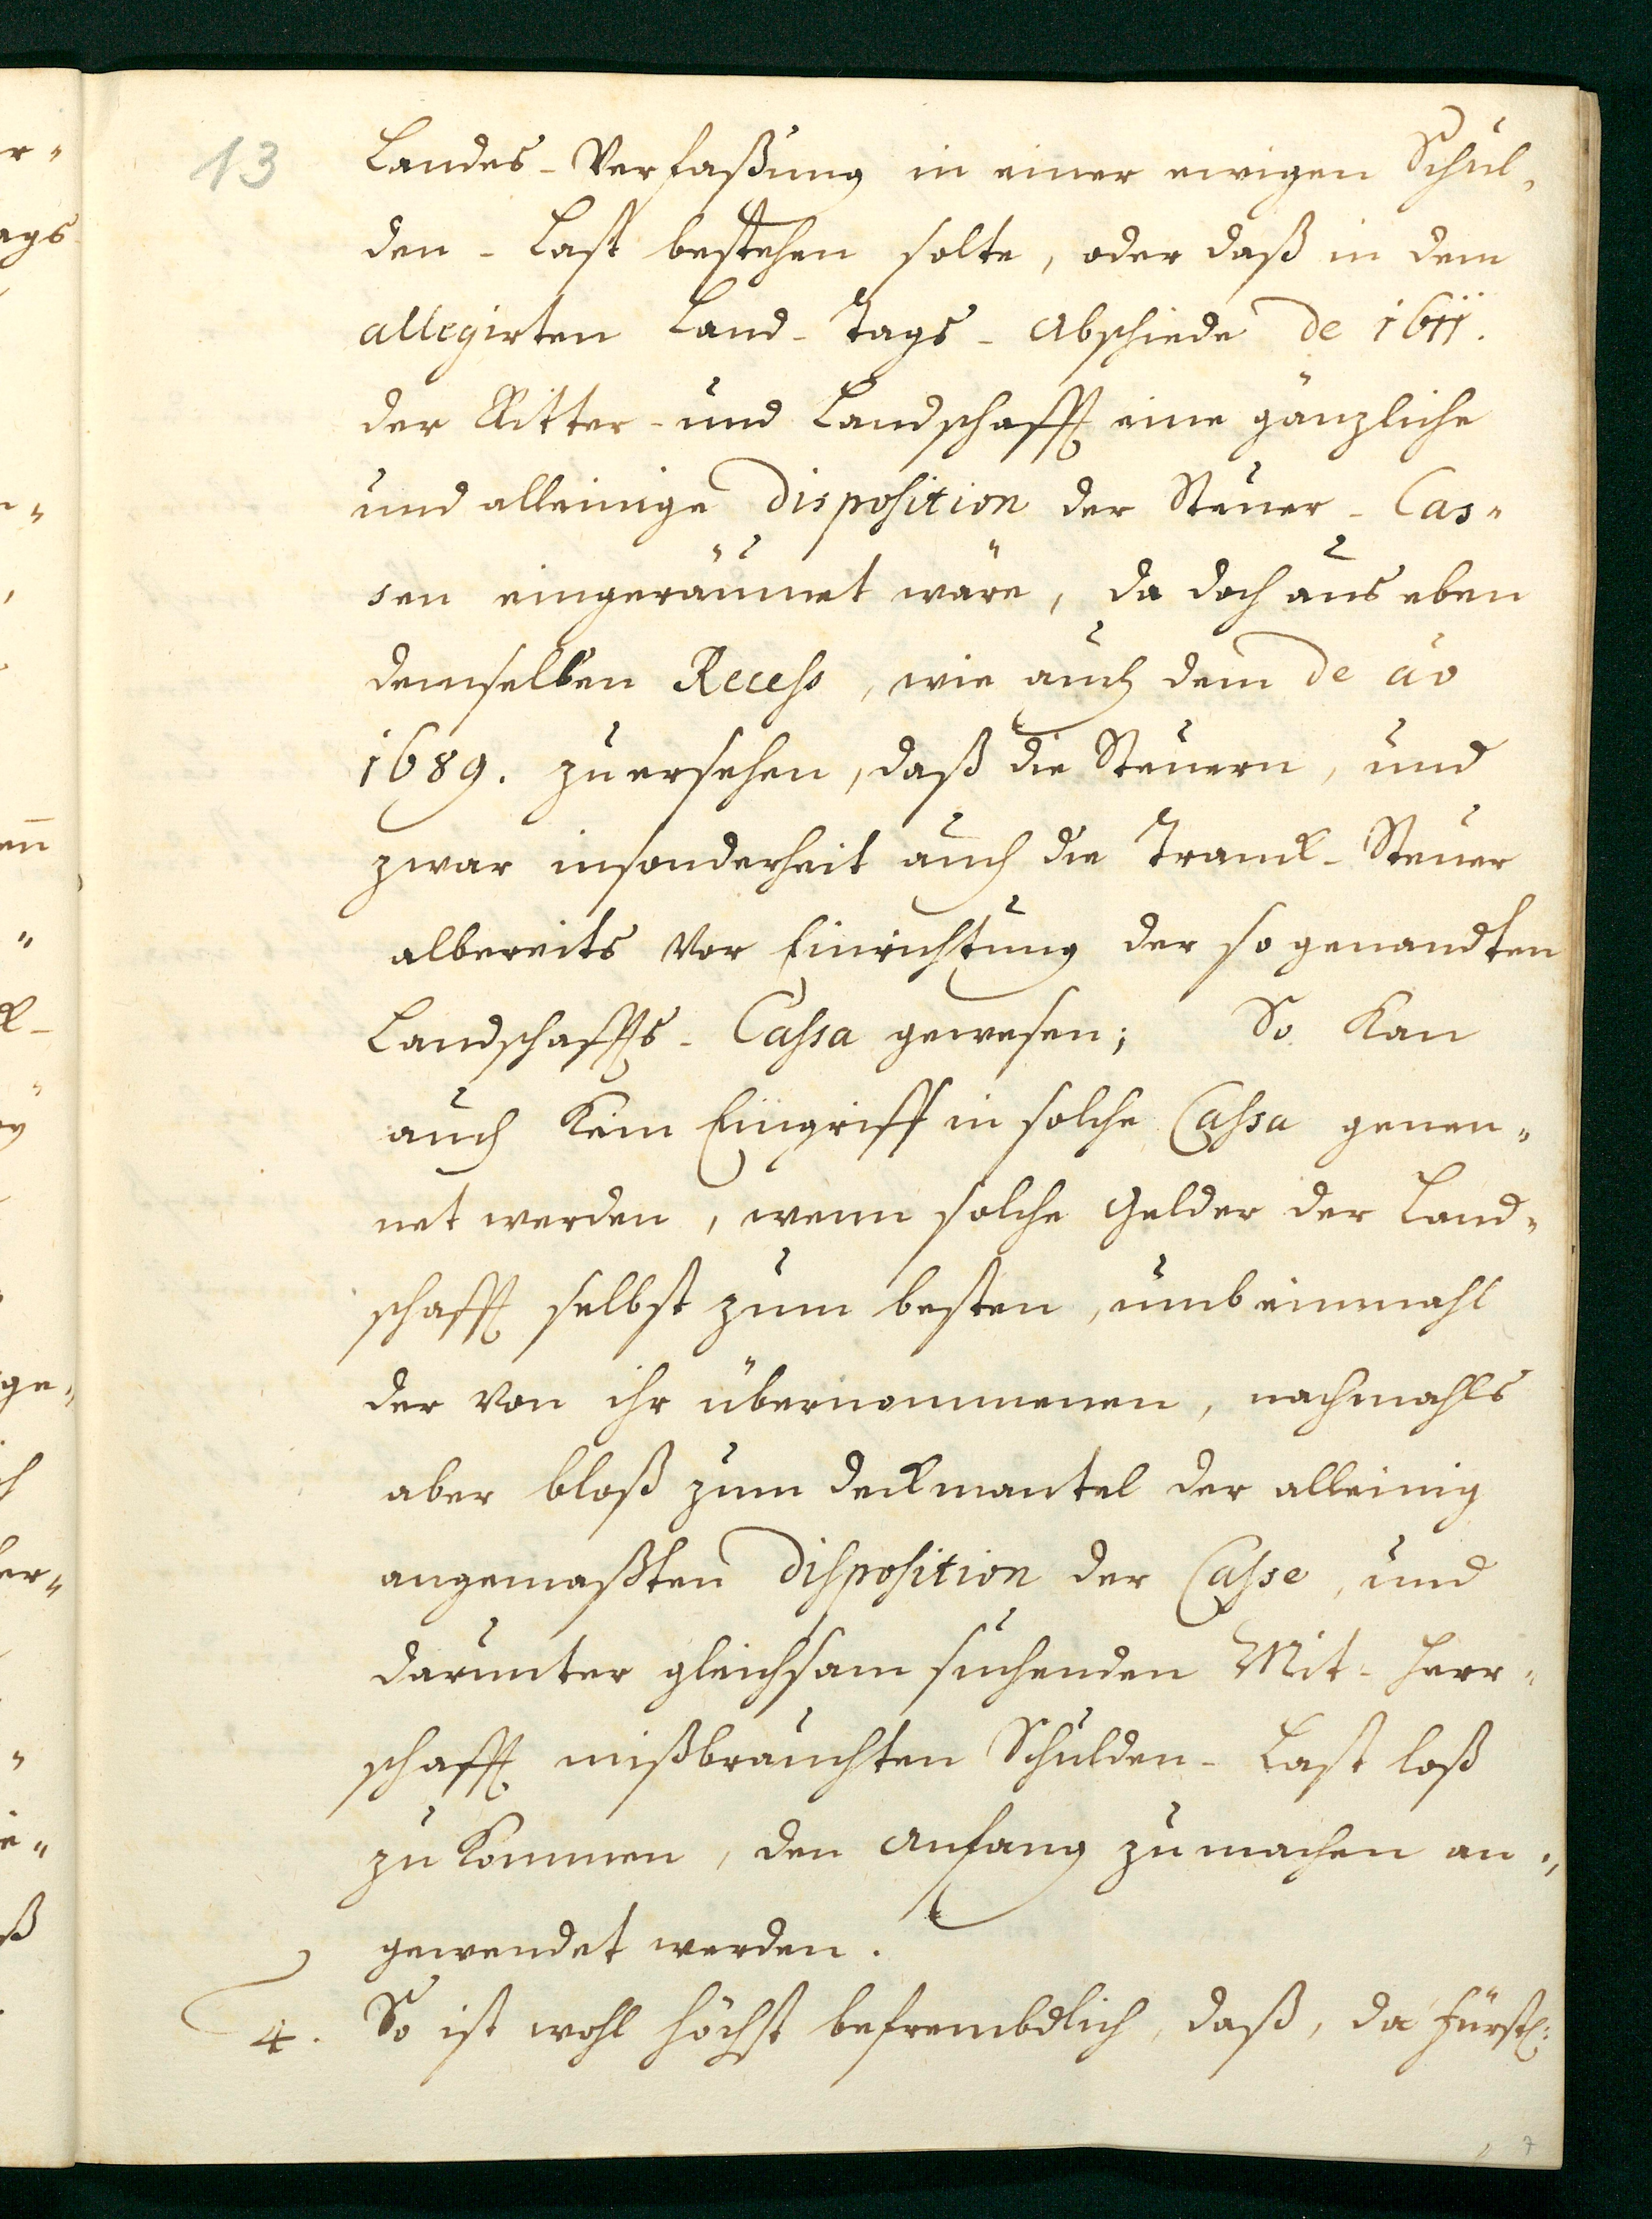 13
Landes-Verfaßung in einer ewigen Schul-
den-Last bestehen solte, oder daß in dem
allegirten Land-Tags-Abschiede de 1611.
der Ritter- und Landschafft eine gäntzliche
und alleinige disposition der Steuer-Cas-
sen eingeräumet wäre, da doch aus eben
demselben Recess, wie auch dem de ao
1689. zu ersehen, daß die Steuern, und
zwar insonderheit auch die Tranck-Steuer
albereits vor Einrichtung der so genandten
Landschaffts-Cassa gewesen; So kan
auch kein Eingriff in solche Cassa genen-
net werden, wenn solche Gelder der Land-
schafft selbst zum besten, umb einmahl
der von ihr übernommenen, nachmahls
aber bloß zum deckmantel der alleinig
angemaßten disposition der Casse, und
darunter gleichsam suchenden Mit-Herr-
schafft mißbrauchten Schulden-Last loß
zu kommen, den Anfang zu machen an-
gewendet werden.
4. So ist wohl höchst befrembdlich, daß, da Fürstl:
7